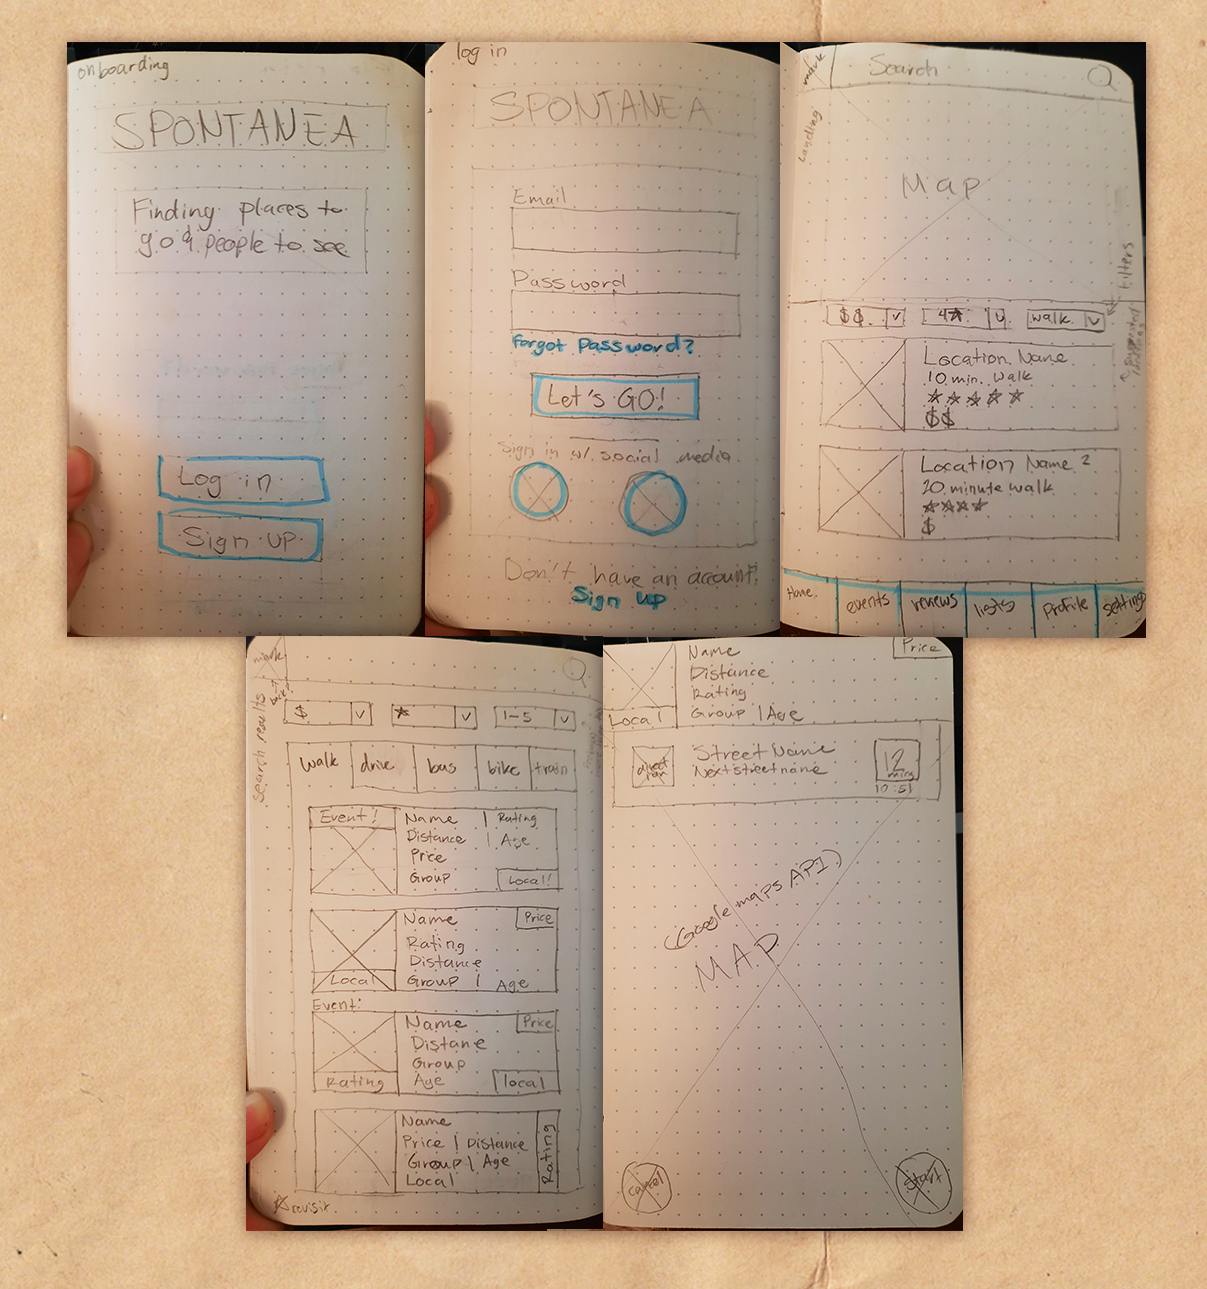 onboarding
SPONTANEA
Finding places to
go & people to see
Log in
Sign up
log in
SPONTANEA
Email
Password
Forgot Password?
Let's GO!
Sign in w/ social media
Don't have an account?
Sign up
Search
landing
Map
filters
$$ v
4★ v
walk v
Location Name
10 min. walk
★★★★★
$$
Location Name 2
20 minute walk
★★★★
$
Home
events
reviews
lists
profile
settings
search results
back?
$ v
★ v
1-5 v
walk
drive
bus
bike
train
Event!
Name | Rating
Distance | Age
Price
Group
Local!
Name
Price
Rating
Distance
Local
Group | Age
Event:
Name
Price
Distane
Group
Rating
Age
local
Name
Price | Distance
Group | Age
Local
Rating
revisit
Name
Price
Distance
Rating
Group | Age
Local
Street Name
Next street name
12
mins
10:51
(Google maps API)
MAP
Cancel
Start